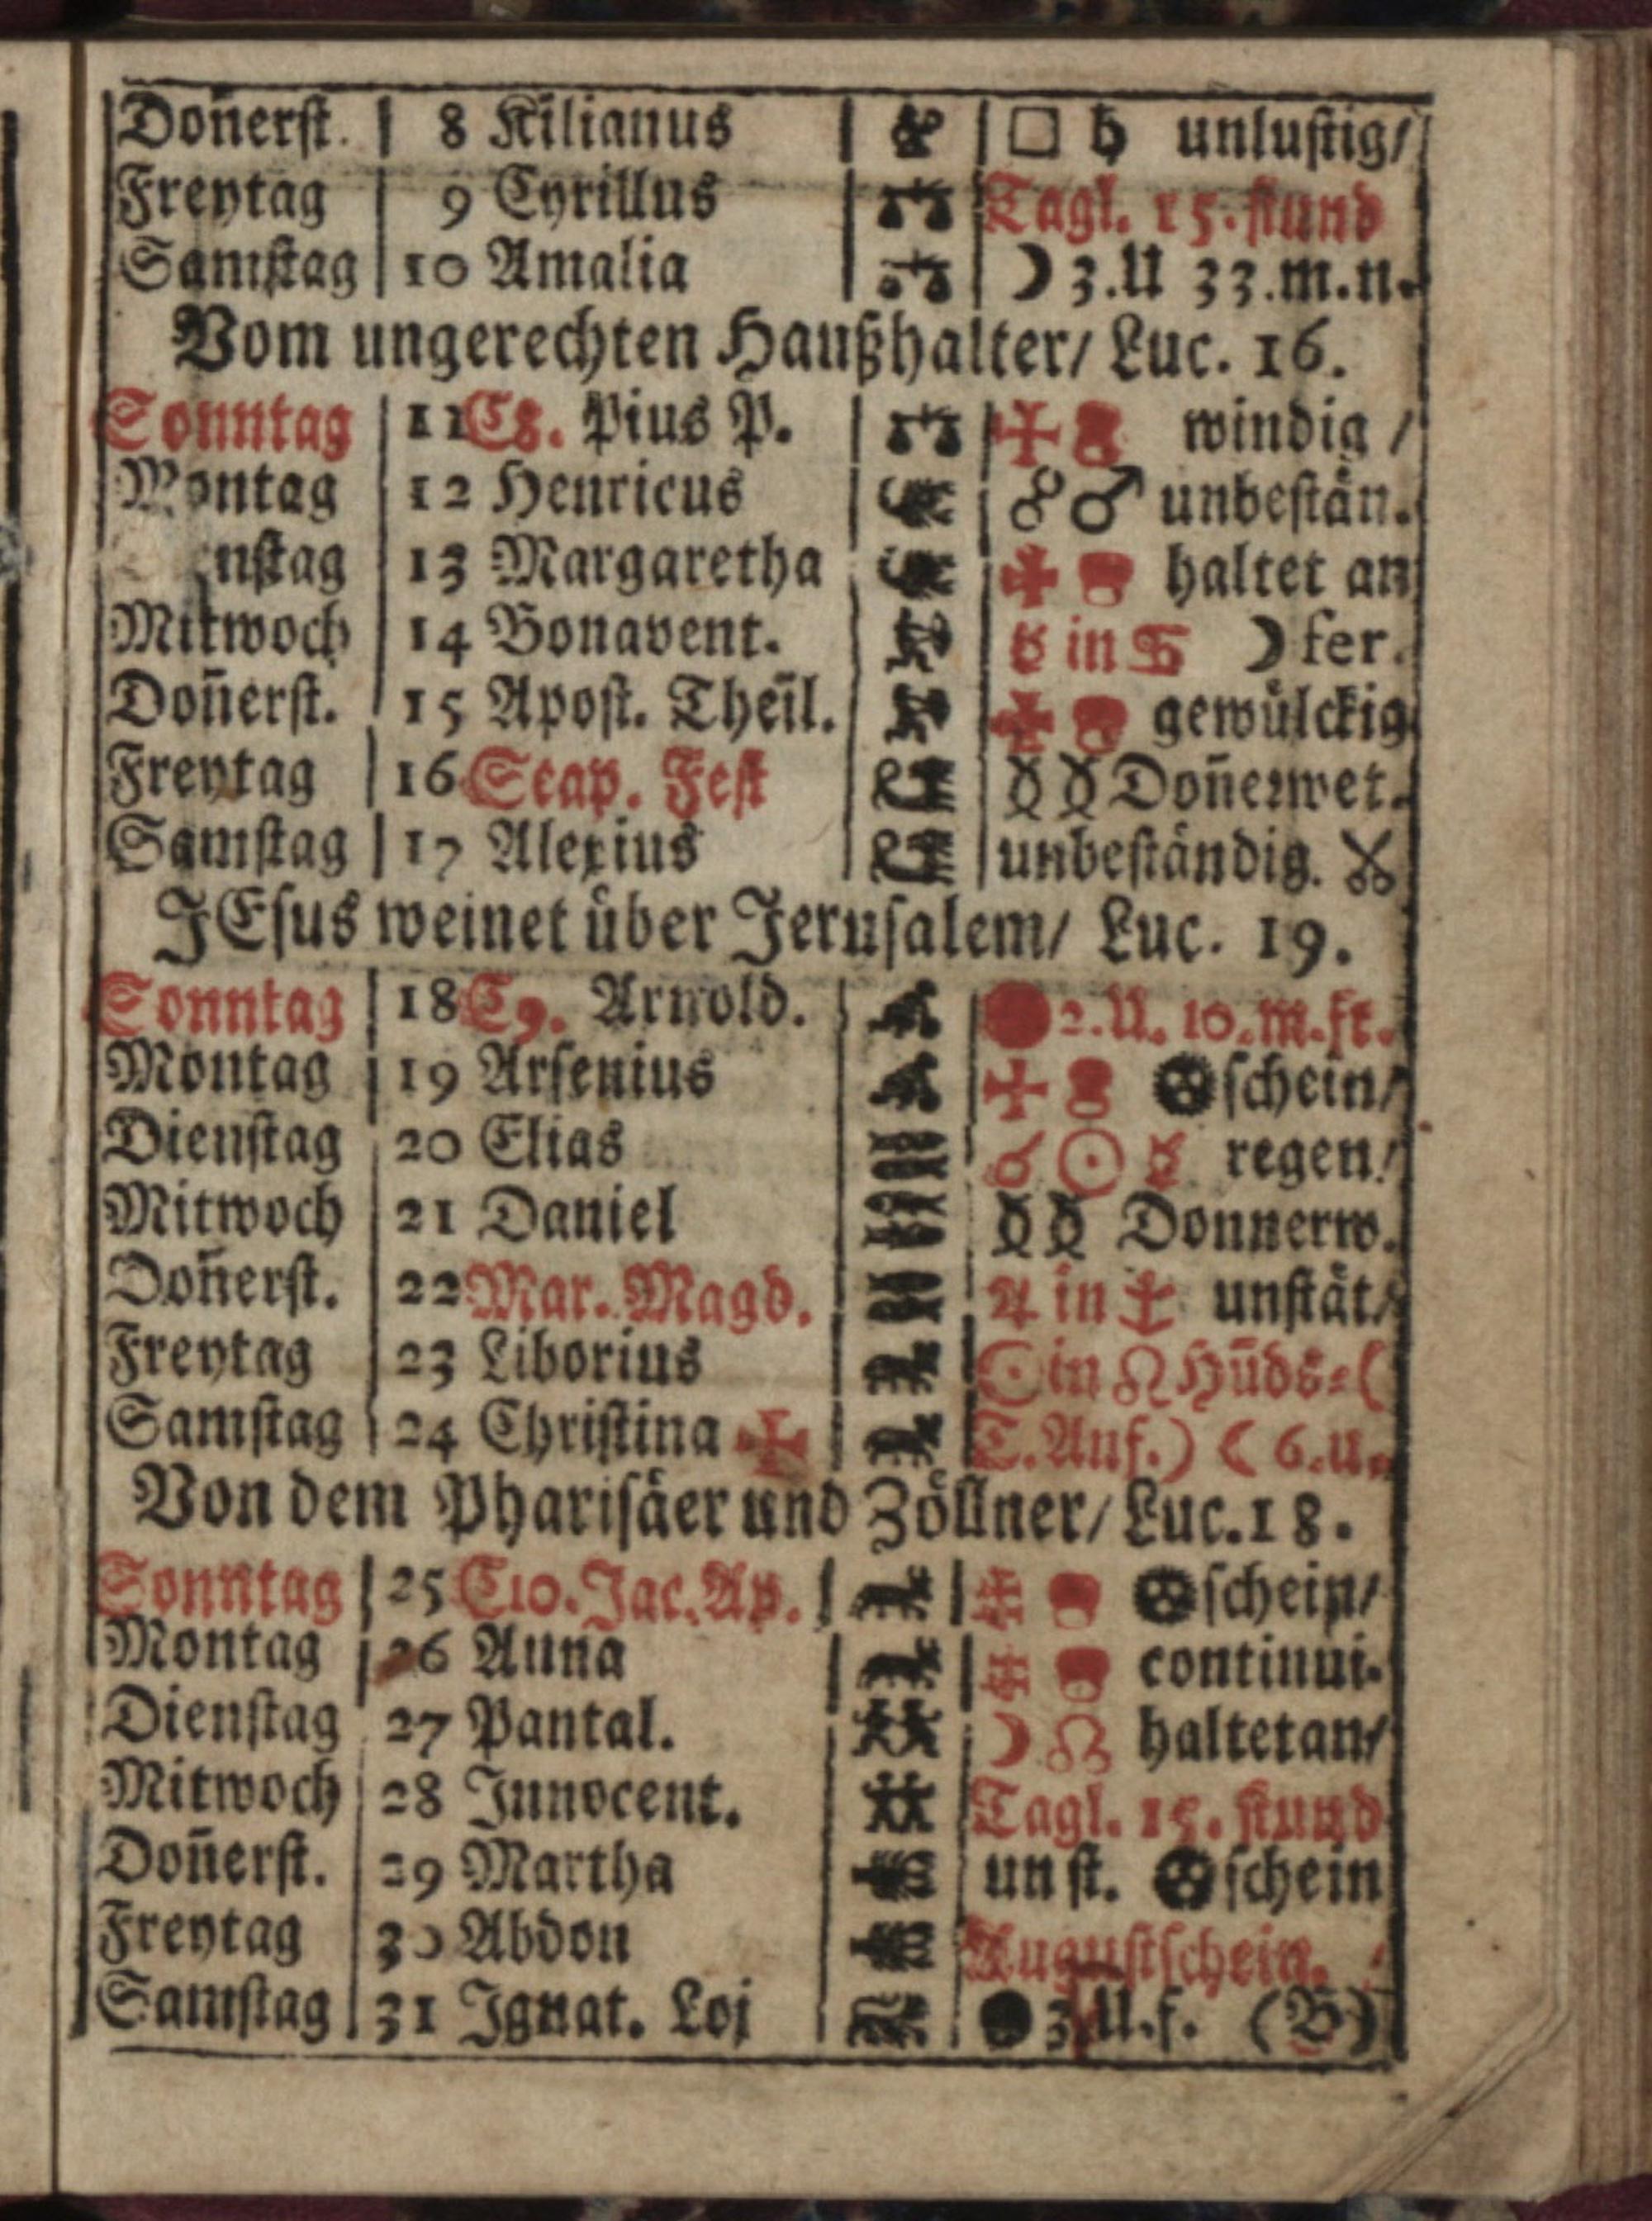 Don̄erst. 8 Kilianus □ ♄ unlustig/
Freytag 9 Cyrillus Tagl. 15. stund
Samstag 10 Amalia ☽ 3.U 33.m.n.
Vom ungerechten Haußhalter/ Luc. 16.
Sonntag 11 C8. Pius P. windig /
Montag 12 Henricus ☍ ♂ unbestän.
nstag 13 Margaretha haltet an
Mitwoch 14 Bonavent. ☿ in ♋ ☽ fer.
Don̄erst. 15 Apost. Theil. gewülckig
Freytag 16 Scap. Fest Don̄erwet.
Samstag 17 Alexius unbeständig.
JEsus weinet über Jerusalem/ Luc. 19.
Sonntag 18 C9. Arnold. 2.U. 10.m.fr.
Montag 19 Arsenius schein/
Dienstag 20 Elias ☌ ☉ ☿ regen/
Mitwoch 21 Daniel Donnerw.
Don̄erst. 22 Mar. Magd. ♃ in unstät/
Freytag 23 Liborius ☉ in ♌ Hūds=(
Samstag 24 Christina ✠ T.Anf.) ☾ 6.u.
Von dem Pharisäer und Zöllner/ Luc. 18.
Sonntag 25 C10. Jac. Ap. schein/
Montag 26 Anna continui.
Dienstag 27 Pantal. ☽ ☊ haltet an/
Mitwoch 28 Innocent. Tagl. 15. stund
Don̄erst. 29 Martha unst. schein
Freytag 30 Abdon Augustschein.
Samstag 31 Ignat. Loj ● 3 U.f. (B)